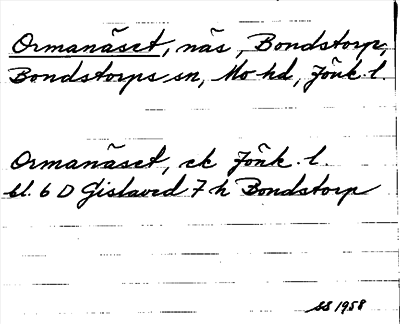 Ormanäset, näs, Bondstorp,
Bondstorps sn, Mo hd, Jönk. l.
Ormanäset, ek Jönk. l.
bl. 6 D Gislaved 7 h Bondstorp
SS 1958